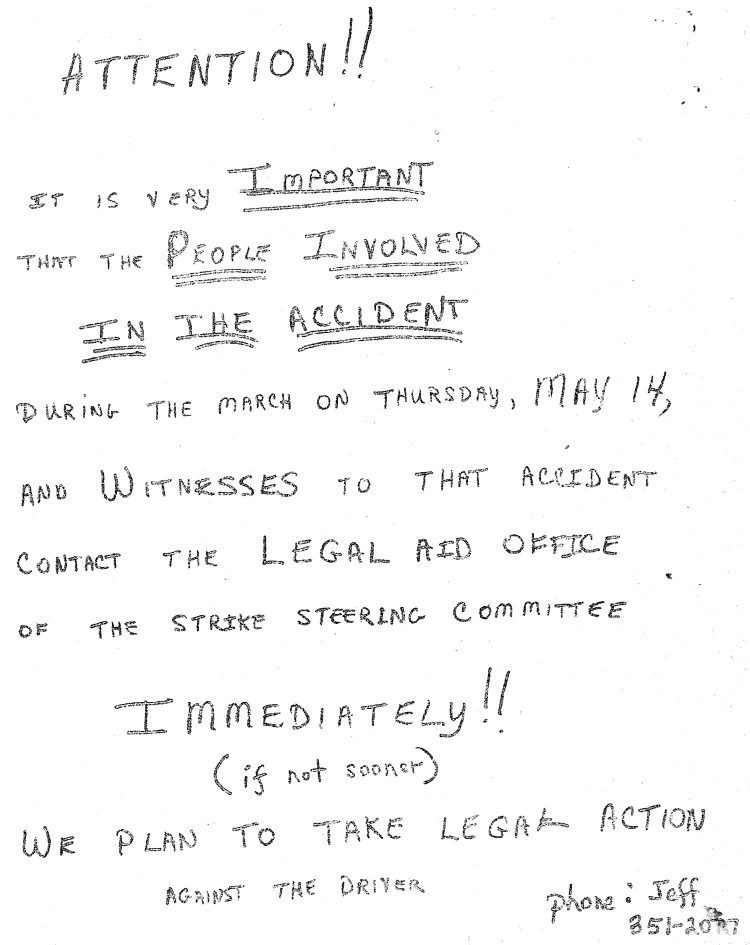 ATTENTION!!
IT IS VERY IMPORTANT
THAT THE PEOPLE INVOLVED
IN THE ACCIDENT
DURING THE MARCH ON THURSDAY, MAY 14,
AND WITNESSES TO THAT ACCIDENT
CONTACT THE LEGAL AID OFFICE
OF THE STRIKE STEERING COMMITTEE
IMMEDIATELY!!
(if not sooner)
WE PLAN TO TAKE LEGAL ACTION
AGAINST THE DRIVER
phone: Jeff